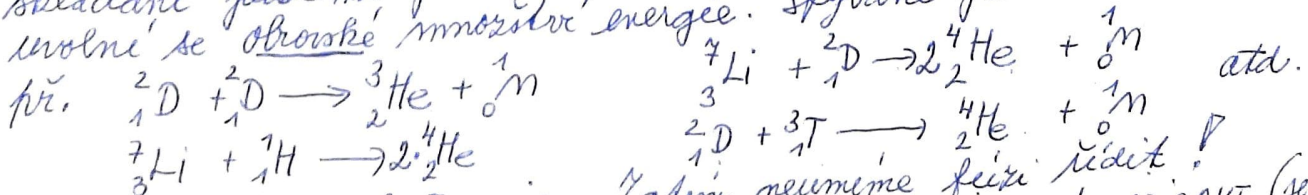 uvolní se obrovské množství energie.
př. ²₁D + ²₁D → ³₂He + ¹₀n
⁷₃Li + ²₁D → 2 ⁴₂He + ¹₀n atd.
⁷₃Li + ¹₁H → 2·⁴₂He
²₁D + ³₁T → ⁴₂He + ¹₀n
neumíme fúzi řídit!